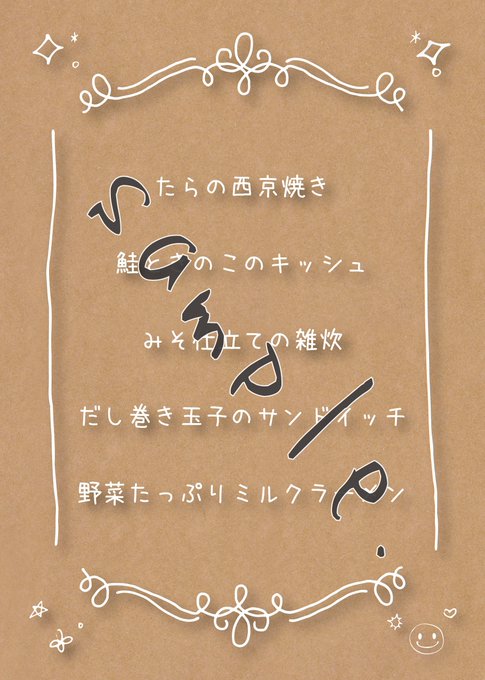 たらの西京焼き
鮭ときのこのキッシュ
みそ仕立ての雑炊
だし巻き玉子のサンドイッチ
野菜たっぷりミルクラーメン
sample.